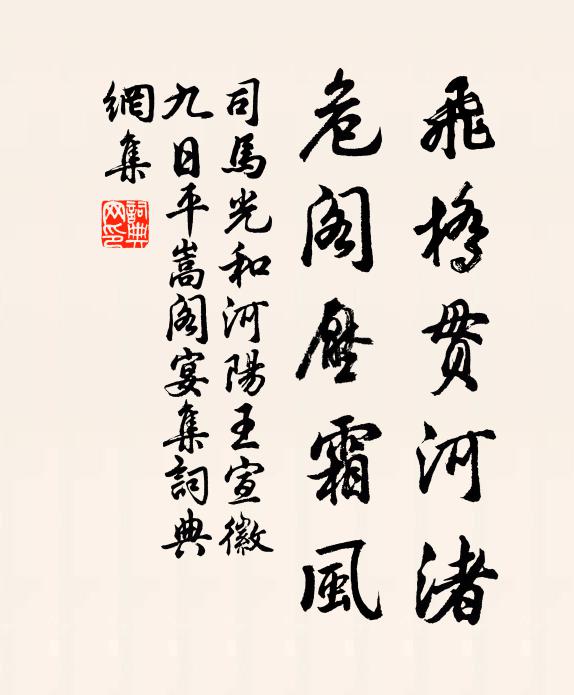 飛橋貫河渚
危閣壓霜風
司馬光和河陽王宣徽
九日平嵩閣宴集詞典
網集
詞典網印